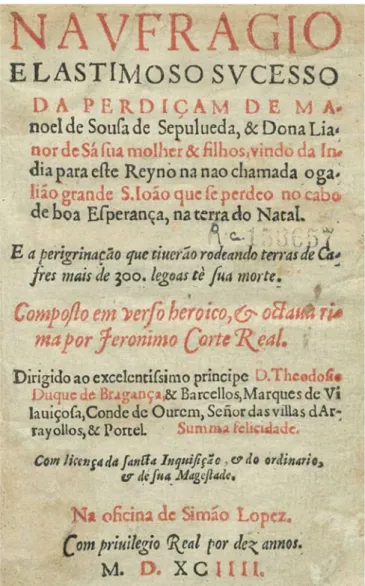 NAVFRAGIO
E LASTIMOSO SVCESSO
DA PERDIÇAM DE MA-
noel de Souſa de Sepulueda, & Dona Lia-
nor de Sá ſua molher & filhos, vindo da In-
dia para eſte Reyno na nao chamada o ga-
lião grande S. Ioão que ſe perdeo no cabo
de boa Eſperança, na terra do Natal.
E a perigrinação que tiuerão rodeando terras de Ca-
fres mais de 300. legoas tè ſua morte.
Compoſto em verſo heroico, & octaua ri-
ma por Jeronimo Corte Real.
Dirigido ao excelentiſsimo principe D. Theodoſio
Duque de Bragança, & Barcellos, Marques de Vi
lauiçoſa, Conde de Ourem, Señor das villas d'Ar-
rayollos, & Portel. Summa felicidade.
Com licença da ſancta Inquiſição, & do ordinario,
& de ſua Mageſtade.
Na oficina de Simão Lopez.
Com priuilegio Real por dez annos.
M. D. XCIIII.